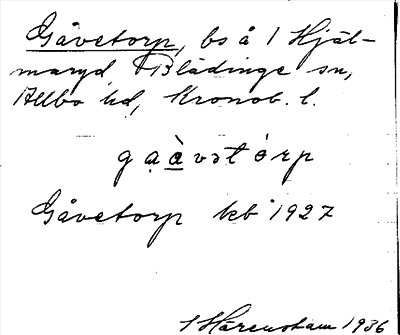 Gåvetorp, bs å 1 Hjäl-
maryd, Blädinge sn,
Allbo hd, Kronob. l.
gạ̀a̲vət órp
Gåvetorp kb 1927
I Härenstam 1936